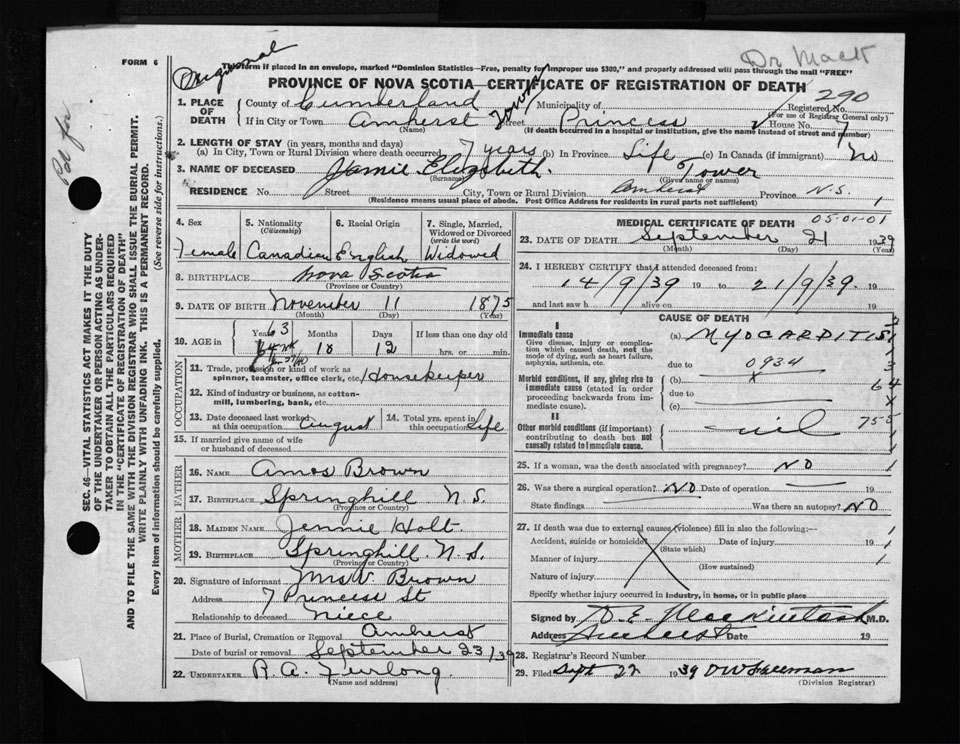 Original
Dr. Mack
FORM 6
This form if placed in an envelope, marked "Dominion Statistics—Free, penalty for improper use $300," and properly addressed will pass through the mail "FREE"
PROVINCE OF NOVA SCOTIA—CERTIFICATE OF REGISTRATION OF DEATH
290
1. PLACE OF DEATH
County of Cumberland Municipality of Registered No.
(For use of Registrar General only)
If in City or Town Amherst Street Princess House No. 7
(Name) (If death occurred in a hospital or institution, give the name instead of street and number)
2. LENGTH OF STAY (in years, months and days)
(a) In City, Town or Rural Division where death occurred 7 years (b) In Province Life (c) In Canada (if immigrant) No
3. NAME OF DECEASED Jamie Elizabeth. Tower
(Surname) (Given name or names)
RESIDENCE No. Street City, Town or Rural Division Amherst Province N.S.
(Residence means usual place of abode. Post Office Address for residents in rural parts not sufficient) 1
4. Sex 5. Nationality (Citizenship) 6. Racial Origin 7. Single, Married, Widowed or Divorced (write the word)
Female Canadian English Widowed
8. BIRTHPLACE Nova Scotia
(Province or Country)
9. DATE OF BIRTH November 11 1875
(Month) (Day) (Year)
10. AGE in Years Months Days If less than one day old
63 10 12 hrs. or min.
OCCUPATION
11. Trade, profession or kind of work as spinner, teamster, office clerk, etc. Housekeeper
12. Kind of industry or business, as cotton-mill, lumbering, bank, etc.
13. Date deceased last worked at this occupation August
14. Total yrs. spent in this occupation Life
15. If married give name of wife or husband of deceased
FATHER
16. NAME Amos Brown
17. BIRTHPLACE Springhill N.S.
(Province or Country)
MOTHER
18. MAIDEN NAME Jennie Holt.
19. BIRTHPLACE Springhill N.S.
(Province or Country)
20. Signature of informant Mrs V. Brown
Address 7 Princess St
Relationship to deceased Niece
21. Place of Burial, Cremation or Removal Amherst
Date of burial or removal September 23/39
22. UNDERTAKER R.A. Furlong.
(Name and address)
MEDICAL CERTIFICATE OF DEATH
05-01-01
23. DATE OF DEATH September 21 1939
(Month) (Day) (Year)
24. I HEREBY CERTIFY that I attended deceased from:
14/9/39 19 to 21/9/39. 19
and last saw h alive on 19
CAUSE OF DEATH
I
Immediate cause (a) MYOCARDITIS
Give disease, injury or complication which caused death, not the mode of dying, such as heart failure, asphyxia, asthenia, etc.
due to 0934
3
Morbid conditions, if any, giving rise to immediate cause (stated in order proceeding backwards from immediate cause).
(b) x 64
due to x
(c)
II
Other morbid conditions (if important) contributing to death but not causally related to immediate cause.
nil
25. If a woman, was the death associated with pregnancy? NO 1
26. Was there a surgical operation? NO Date of operation 19
State findings Was there an autopsy? NO
27. If death was due to external causes (violence) fill in also the following:—
Accident, suicide or homicide Date of injury 19
(State which)
Manner of injury
(How sustained)
Nature of injury
Specify whether injury occurred in industry, in home, or in public place
Signed by D.E. Mackintosh M.D.
Address Amherst Date 19
28. Registrar's Record Number
29. Filed Sept 22 1939 DW Freeman
(Division Registrar)
SEC. 46—VITAL STATISTICS ACT MAKES IT THE DUTY
OF THE UNDERTAKER OR PERSON ACTING AS UNDER-
TAKER TO OBTAIN ALL THE PARTICULARS REQUIRED
IN THE "CERTIFICATE OF REGISTRATION OF DEATH"
AND TO FILE THE SAME WITH THE DIVISION REGISTRAR WHO SHALL ISSUE THE BURIAL PERMIT.
WRITE PLAINLY WITH UNFADING INK. THIS IS A PERMANENT RECORD.
Every item of information should be carefully supplied. (See reverse side for instructions.)